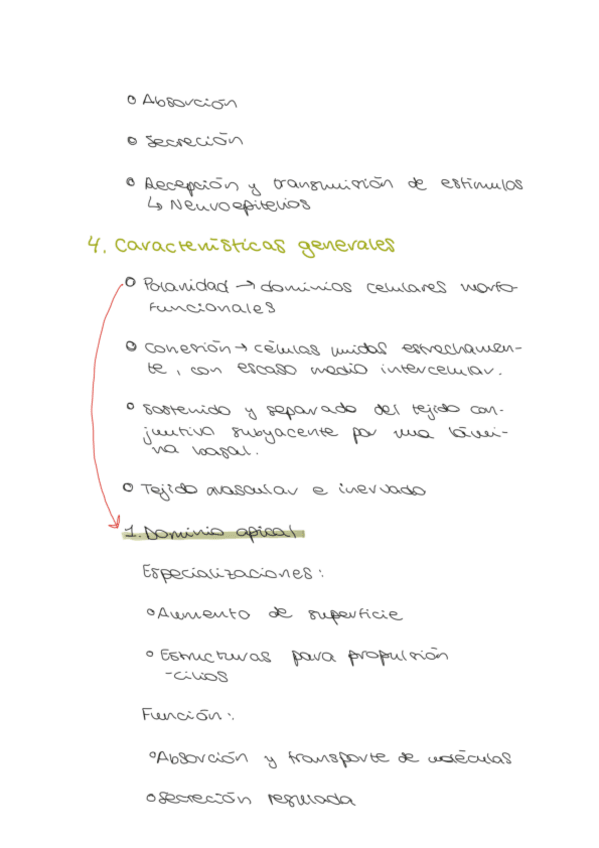 o Absorción
o Secreción
o Recepción y transmisión de estímulos
↳ Neuroepitelios
4. Características generales
o Polaridad → dominios celulares morfo-
funcionales
o Cohesión → células unidas estrechamen-
te, con escaso medio intercelular.
o Sostenido y separado del tejido con-
juntivo subyacente por una lámi-
na basal.
o Tejido avascular e inervado
1. Dominio apical
Especializaciones:
o Aumento de superficie
o Estructuras para propulsión
- cilios
Función:
o Absorción y transporte de moléculas
o Secreción regulada